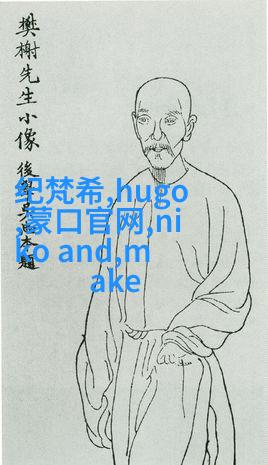 樊榭先生小像
後學吳本題
纪梵希,hugo
,蒙口官网,ni
ko and,m
ake